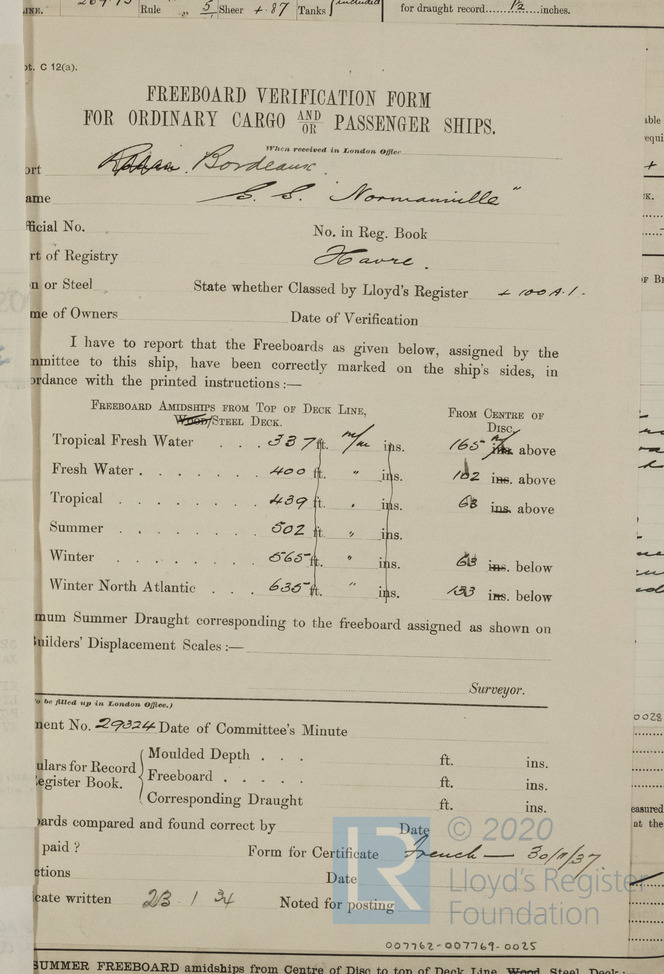 LINE. Rule „ 5 Sheer + .87 Tanks {included for draught record......1½......inches.
pt. C 12(a).
FREEBOARD VERIFICATION FORM
FOR ORDINARY CARGO AND/OR PASSENGER SHIPS.
When received in London Office
ort Bordeaux.
ame S. S. "Normanville"
fficial No. No. in Reg. Book
rt of Registry Havre.
n or Steel State whether Classed by Lloyd's Register + 100 A.1.
me of Owners Date of Verification
I have to report that the Freeboards as given below, assigned by the
mmittee to this ship, have been correctly marked on the ship's sides, in
ordance with the printed instructions:—
FREEBOARD AMIDSHIPS FROM TOP OF DECK LINE, FROM CENTRE OF
WOOD/STEEL DECK. DISC.
Tropical Fresh Water . . . 337 ft. m/m ins. 165 m/m ins. above
Fresh Water . . . . . . . 400 ft. " ins. 102 ins. above
Tropical . . . . . . . . 439 ft. " ins. 63 ins. above
Summer . . . . . . . . 502 ft. " ins.
Winter . . . . . . . . 565 ft. " ins. 63 ins. below
Winter North Atlantic . . . 635 ft. " ins. 133 ins. below
mum Summer Draught corresponding to the freeboard assigned as shown on
uilders' Displacement Scales :—
Surveyor.
o be filled up in London Office.)
ment No. 29324 Date of Committee's Minute
ulars for Record Moulded Depth . . . ft. ins.
egister Book. Freeboard . . . . . ft. ins.
Corresponding Draught ft. ins.
oards compared and found correct by Date
paid ? Form for Certificate French — 30/11/37
ctions Date
cate written 23 . 1 34 Noted for posting
© 2020
LR
Lloyd's Register
Foundation
007762-007769-0025
SUMMER FREEBOARD amidships from Centre of Disc to top of Deck Line, Wood Steel Deck: